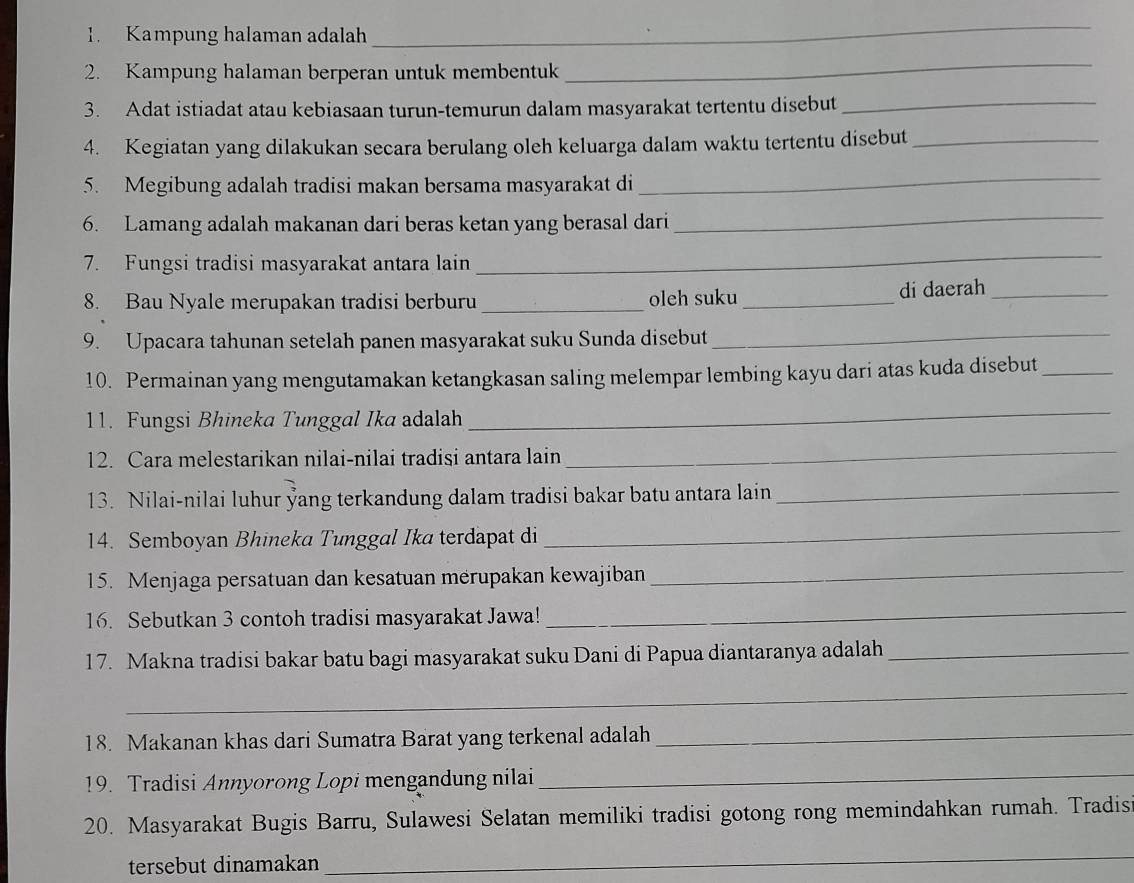 1. Kampung halaman adalah ____
2. Kampung halaman berperan untuk membentuk ____
3. Adat istiadat atau kebiasaan turun-temurun dalam masyarakat tertentu disebut ____
4. Kegiatan yang dilakukan secara berulang oleh keluarga dalam waktu tertentu disebut ____
5. Megibung adalah tradisi makan bersama masyarakat di ____
6. Lamang adalah makanan dari beras ketan yang berasal dari ____
7. Fungsi tradisi masyarakat antara lain ____
8. Bau Nyale merupakan tradisi berburu ____ oleh suku ____ di daerah ____
9. Upacara tahunan setelah panen masyarakat suku Sunda disebut ____
10. Permainan yang mengutamakan ketangkasan saling melempar lembing kayu dari atas kuda disebut ____
11. Fungsi Bhineka Tunggal Ika adalah ____
12. Cara melestarikan nilai-nilai tradisi antara lain ____
13. Nilai-nilai luhur yang terkandung dalam tradisi bakar batu antara lain ____
14. Semboyan Bhineka Tunggal Ika terdapat di ____
15. Menjaga persatuan dan kesatuan merupakan kewajiban ____
16. Sebutkan 3 contoh tradisi masyarakat Jawa! ____
17. Makna tradisi bakar batu bagi masyarakat suku Dani di Papua diantaranya adalah ____
____
18. Makanan khas dari Sumatra Barat yang terkenal adalah ____
19. Tradisi Annyorong Lopi mengandung nilai ____
20. Masyarakat Bugis Barru, Sulawesi Selatan memiliki tradisi gotong rong memindahkan rumah. Tradisi
tersebut dinamakan ____